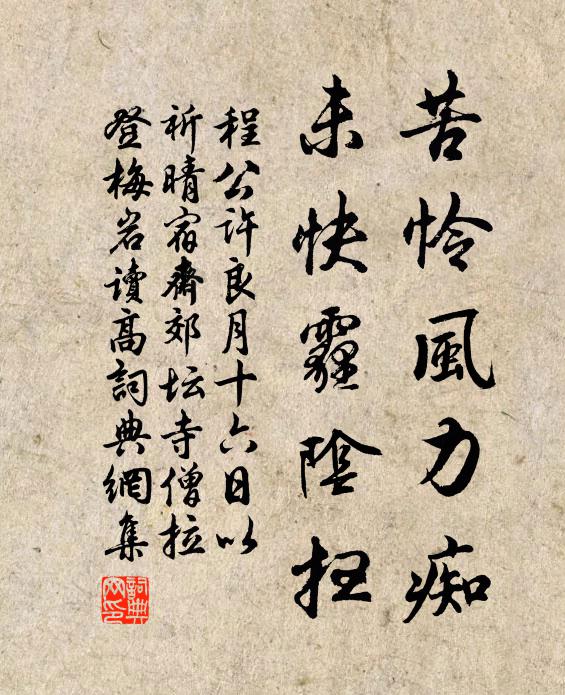 苦怜風力痴
未快霾陰扫
程公许良月十六日以
祈晴宿齋郊坛寺僧拉
登梅岩讀高詞典網集
詞典网印